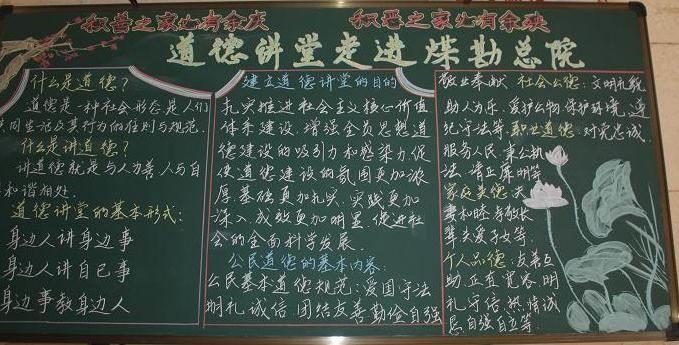 积善之家必有余庆
积恶之家必有余殃
道德讲堂走进煤勘总院
什么是道德?
道德是一种社会形态是人们
共同生活及其行为的准则与规范.
什么是讲道德?
讲道德就是与人为善,人与自
和谐相处.
道德讲堂的基本形式:
身边人讲身边事
身边人讲自己事
身边事教身边人
建立道德讲堂的目的
扎实推进社会主义核心价值
体系建设,增强全员思想道
德建设的吸引力和感染力,促
使道德建设的氛围更加浓
厚.基础更加扎实,实践更加
深入,成效更加明显,促进社
会的全面科学发展.
公民道德的基本内容:
公民基本道德规范:爱国守法
明礼诚信,团结友善勤俭自强
敬业奉献
社会公德:文明礼貌
助人为乐,爱护公物,保护环境,遵
纪守法等.职业道德:忠诚,
服务人民,秉公执
法,清正廉明等
家庭美德:夫
妻和睦,孝敬长
辈关爱子女等.
个人品德:友善互
助,正直宽容,明
礼守信,热情诚
恳,自强自立等.